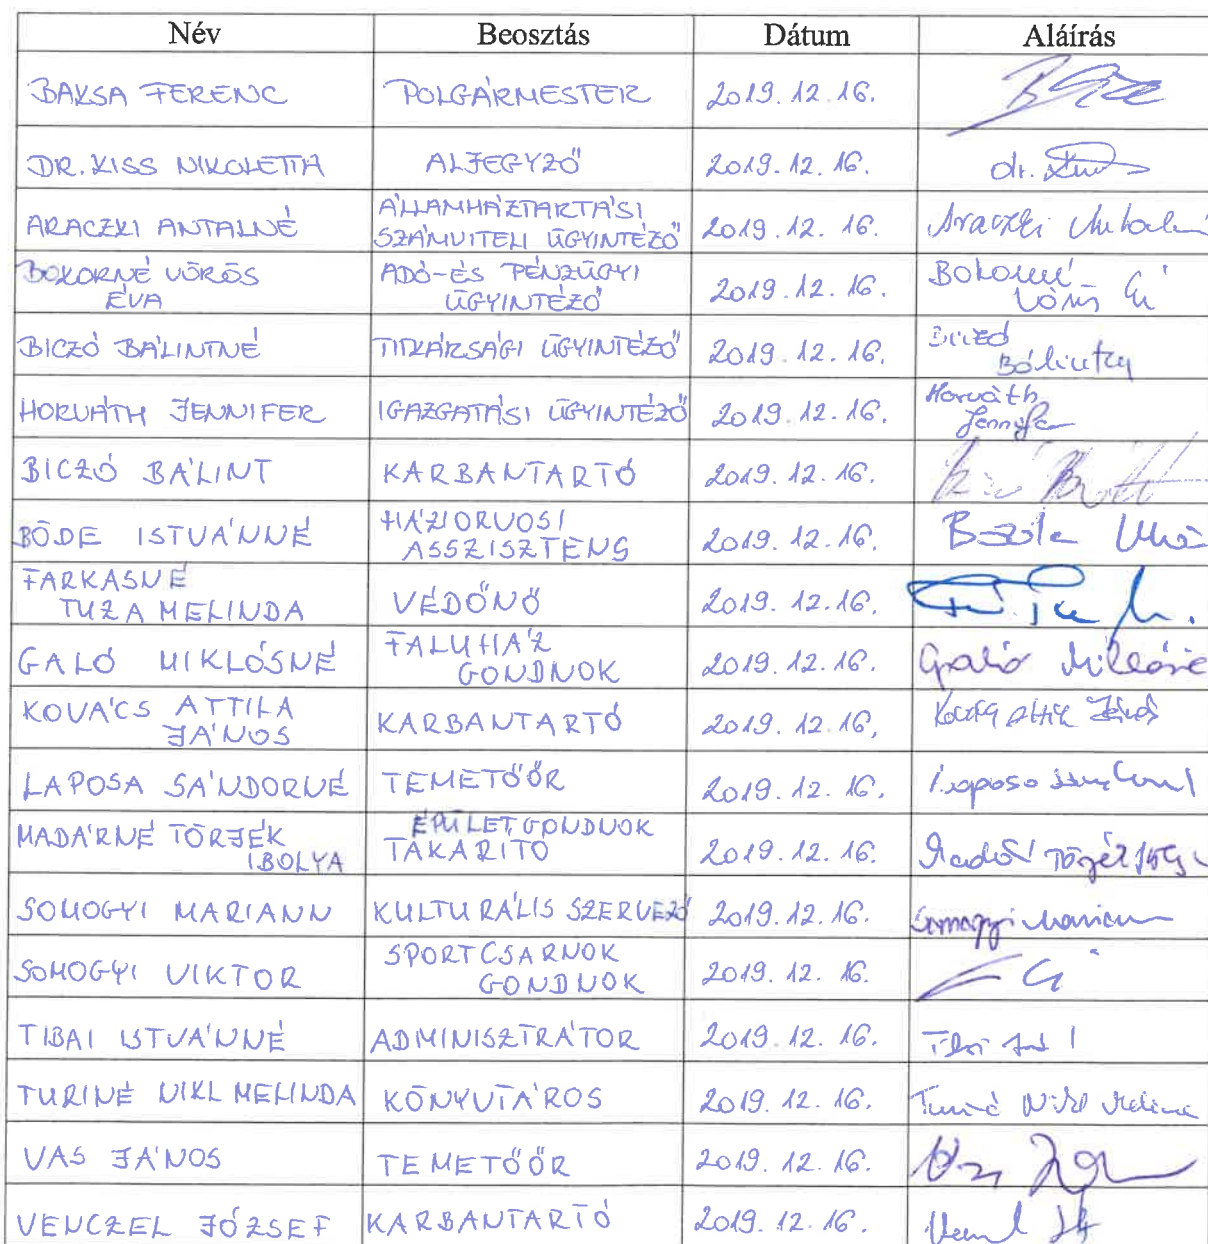 Név Beosztás Dátum Aláírás
BAKSA FERENC POLGÁRMESTER 2019.12.16.
DR. KISS NIKOLETTA ALJEGYZŐ 2019.12.16. dr.
ARACZKI ANTALNÉ ÁLLAMHÁZTARTÁSI SZÁMVITELI ÜGYINTÉZŐ 2019.12.16. Araczki Antalné
BOKORNÉ VÖRÖS ÉVA ADÓ-ÉS PÉNZÜGYI ÜGYINTÉZŐ 2019.12.16. Bokorné Vörös
BICZÓ BÁLINTNÉ TITKÁRSÁGI ÜGYINTÉZŐ 2019.12.16. Biczó Bálintné
HORVÁTH JENNIFER IGAZGATÁSI ÜGYINTÉZŐ 2019.12.16. Horváth Jennifer
BICZÓ BÁLINT KARBANTARTÓ 2019.12.16.
BÖDE ISTVÁNNÉ HÁZIORVOSI ASSZISZTENS 2019.12.16.
FARKASNÉ TUZA MELINDA VÉDŐNŐ 2019.12.16.
GALÓ MIKLÓSNÉ FALUHÁZ GONDNOK 2019.12.16. Galó Miklósné
KOVÁCS ATTILA JÁNOS KARBANTARTÓ 2019.12.16. Kovács Attila János
LAPOSA SÁNDORNÉ TEMETŐŐR 2019.12.16. Laposa
MADÁRNÉ TÖRJÉK IBOLYA ÉPÜLETGONDNOK TAKARÍTÓ 2019.12.16.
SOMOGYI MARIANN KULTURÁLIS SZERVEZŐ 2019.12.16. Somogyi Mariann
SOMOGYI VIKTOR SPORTCSARNOK GONDNOK 2019.12.16.
TIBAI ISTVÁNNÉ ADMINISZTRÁTOR 2019.12.16.
TURINÉ NIKL MELINDA KÖNYVTÁROS 2019.12.16. Turiné Nikl Melinda
VAS JÁNOS TEMETŐŐR 2019.12.16.
VENCZEL JÓZSEF KARBANTARTÓ 2019.12.16.